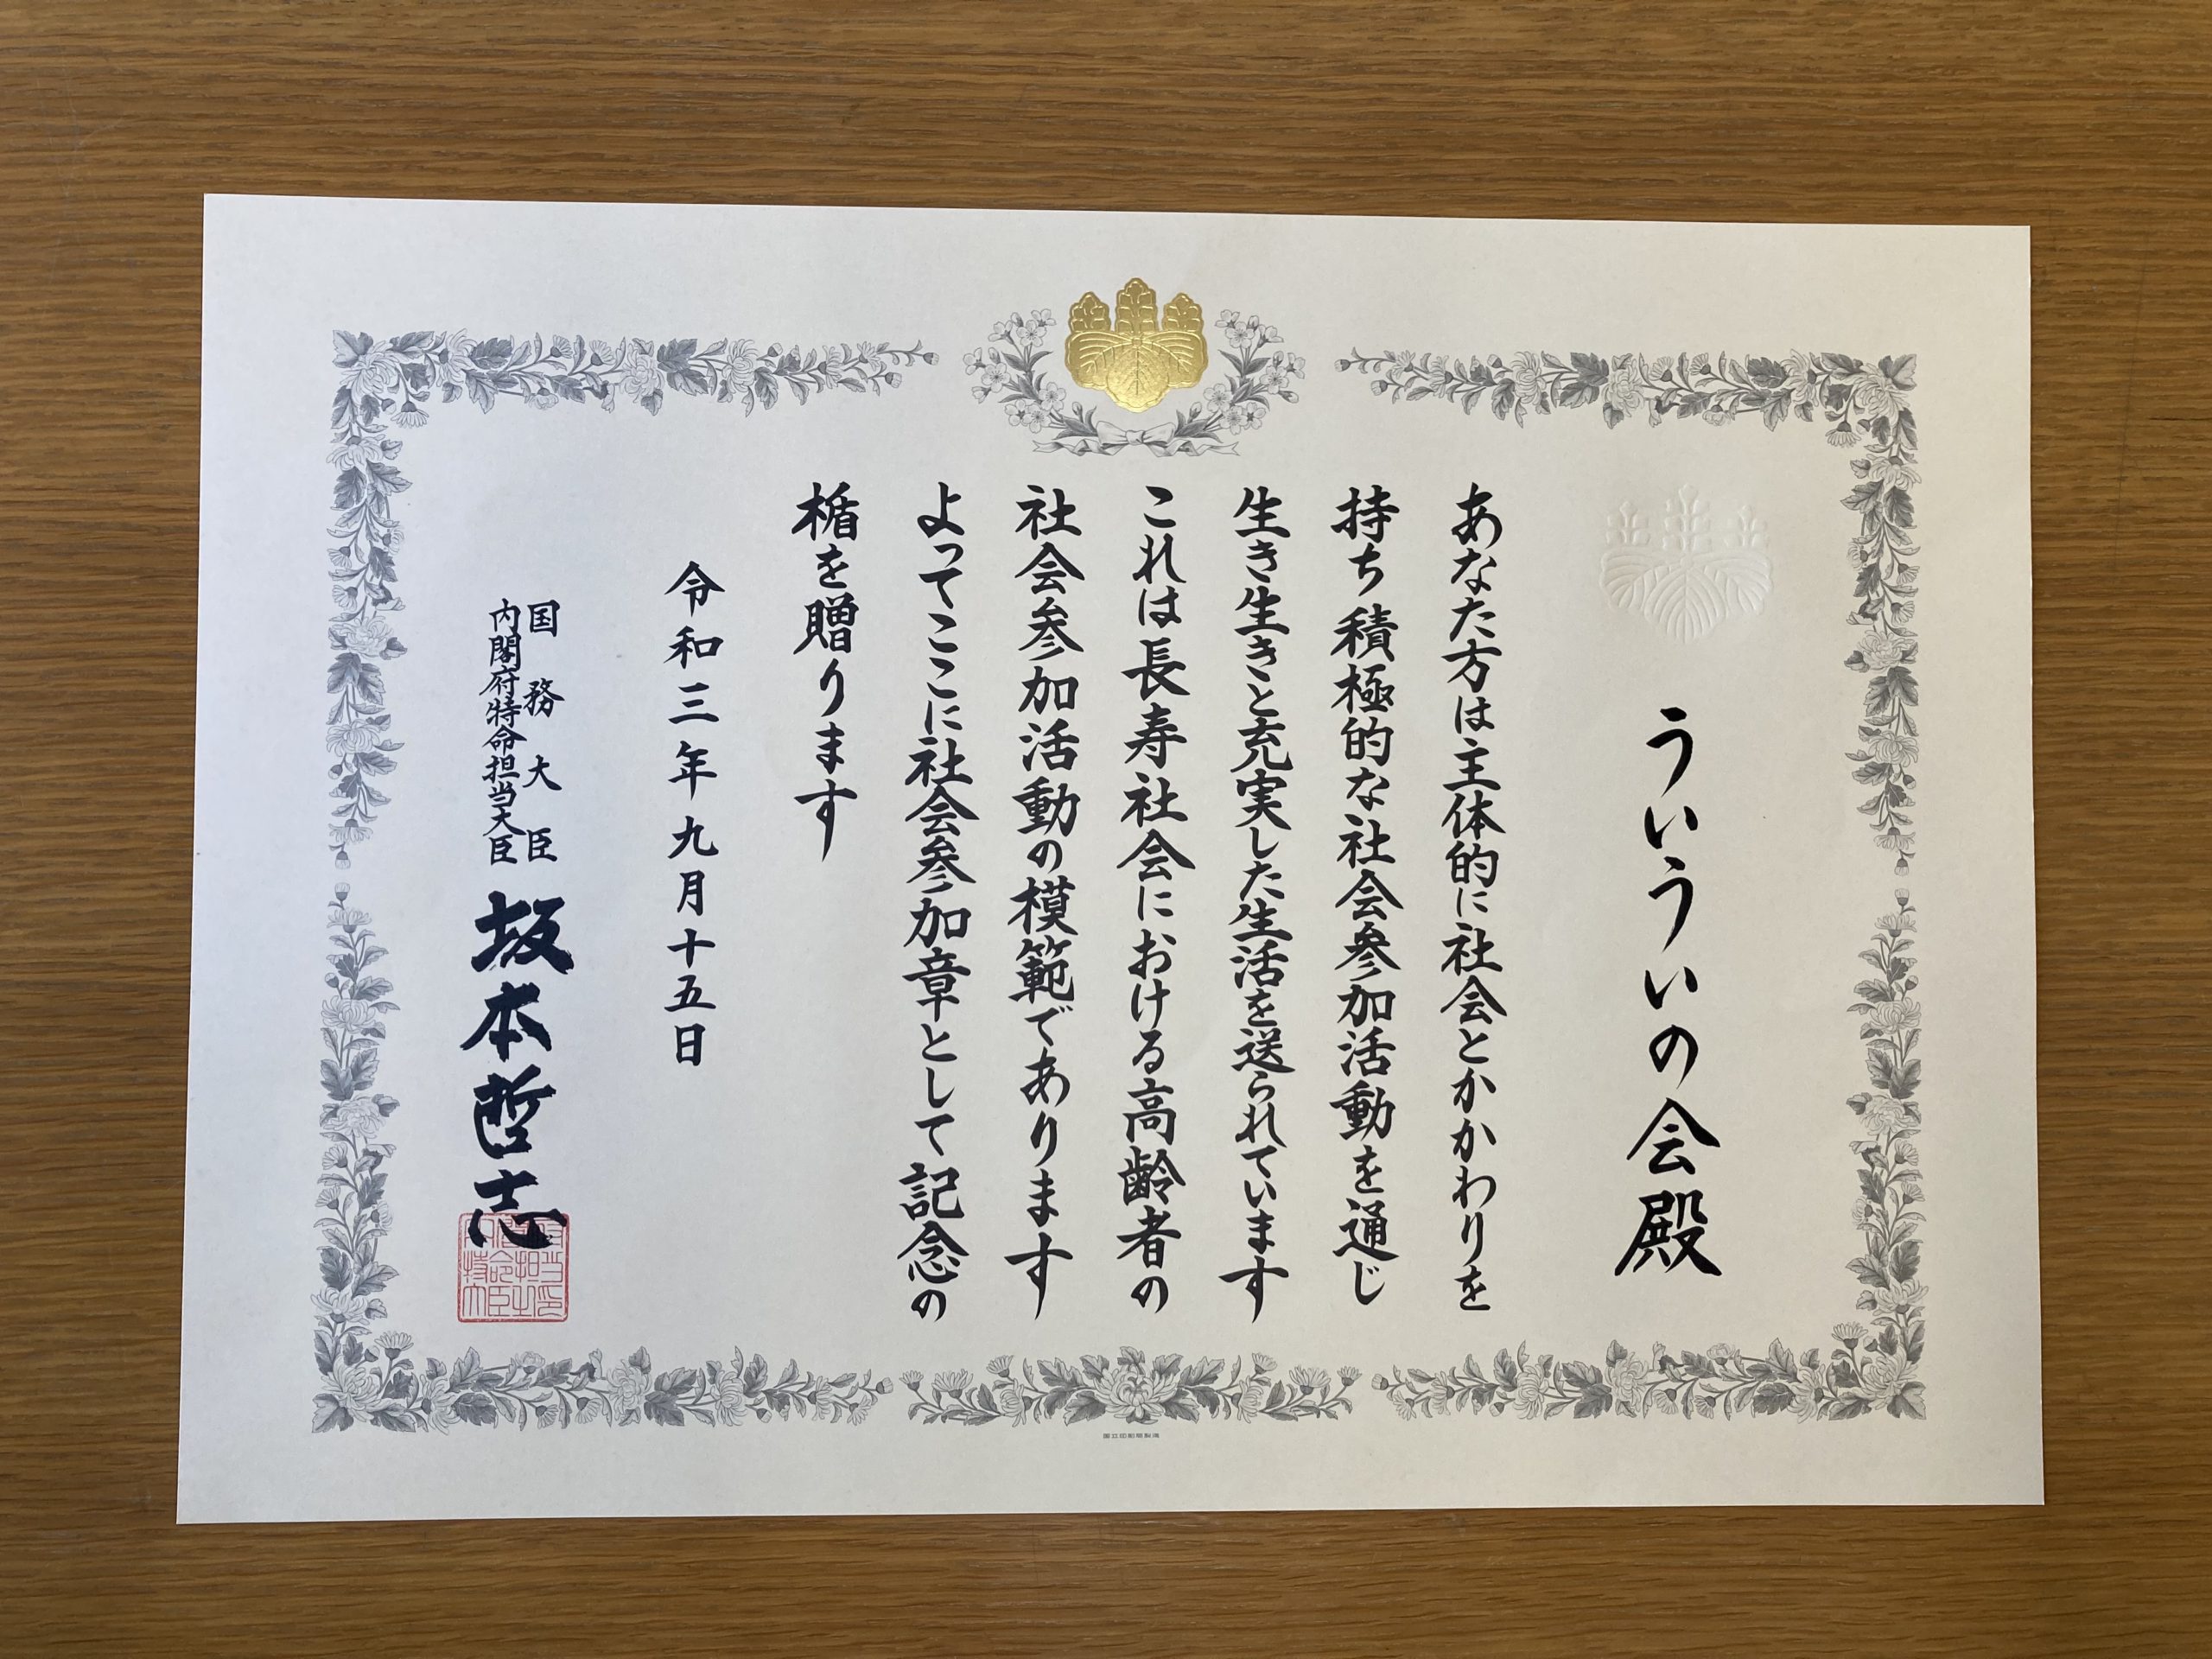 ういういの会殿
あなた方は主体的に社会とかかわりを
持ち積極的な社会参加活動を通じ
生き生きと充実した生活を送られています
これは長寿社会における高齢者の
社会参加活動の模範であります
よってここに社会参加章として記念の
楯を贈ります
令和三年九月十五日
国務大臣
内閣府特命担当大臣
坂本哲志
国立印刷局製造